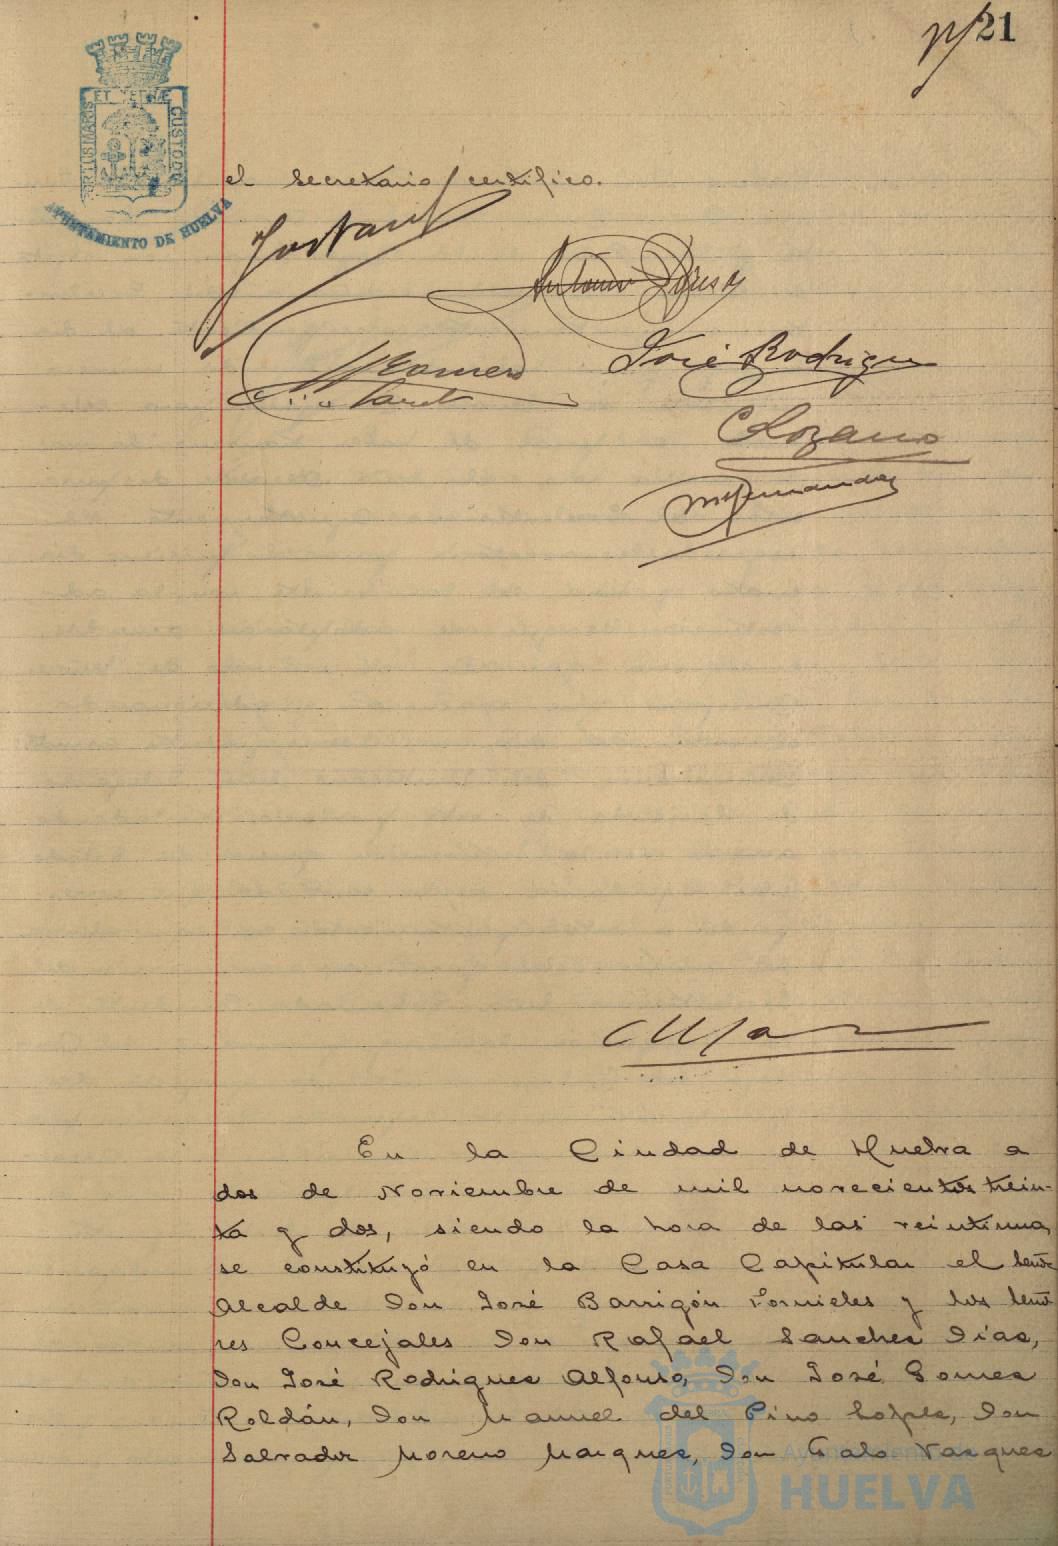 21
PORTUS MARIS ET TERRÆ CUSTODIA
AYUNTAMIENTO DE HUELVA
el secretario, certifico.
Antonio
Romero
José Rodriguez
C Lozano
M Fernandez
En la Ciudad de Huelva a
dos de Noviembre de mil novecientos trein-
ta y dos, siendo la hora de las veintiuna,
se constituyó en la Casa Capitular el Señor
Alcalde Don José Barrigón Fornieles y los Seño
res Concejales Don Rafael Sanchez Diaz,
Don José Rodriguez Alfonso, Don José Gomez
Roldán, Don Manuel del Pino Lopez, Don
Salvador Moreno Marquez, Don Galo Vazquez
HUELVA